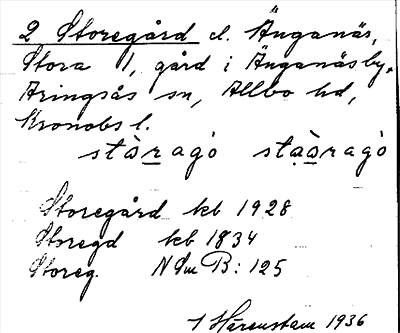 2 Storegård el. Änganäs,
Stora 1, gård i Änganäs by,
Aringsås sn, Allbo hd,
Kronobs l.
stàragò stạàragò
Storegård kb 1928
Storegd kb 1834
Storeg. NSm B: 125
1 Härenstam 1936